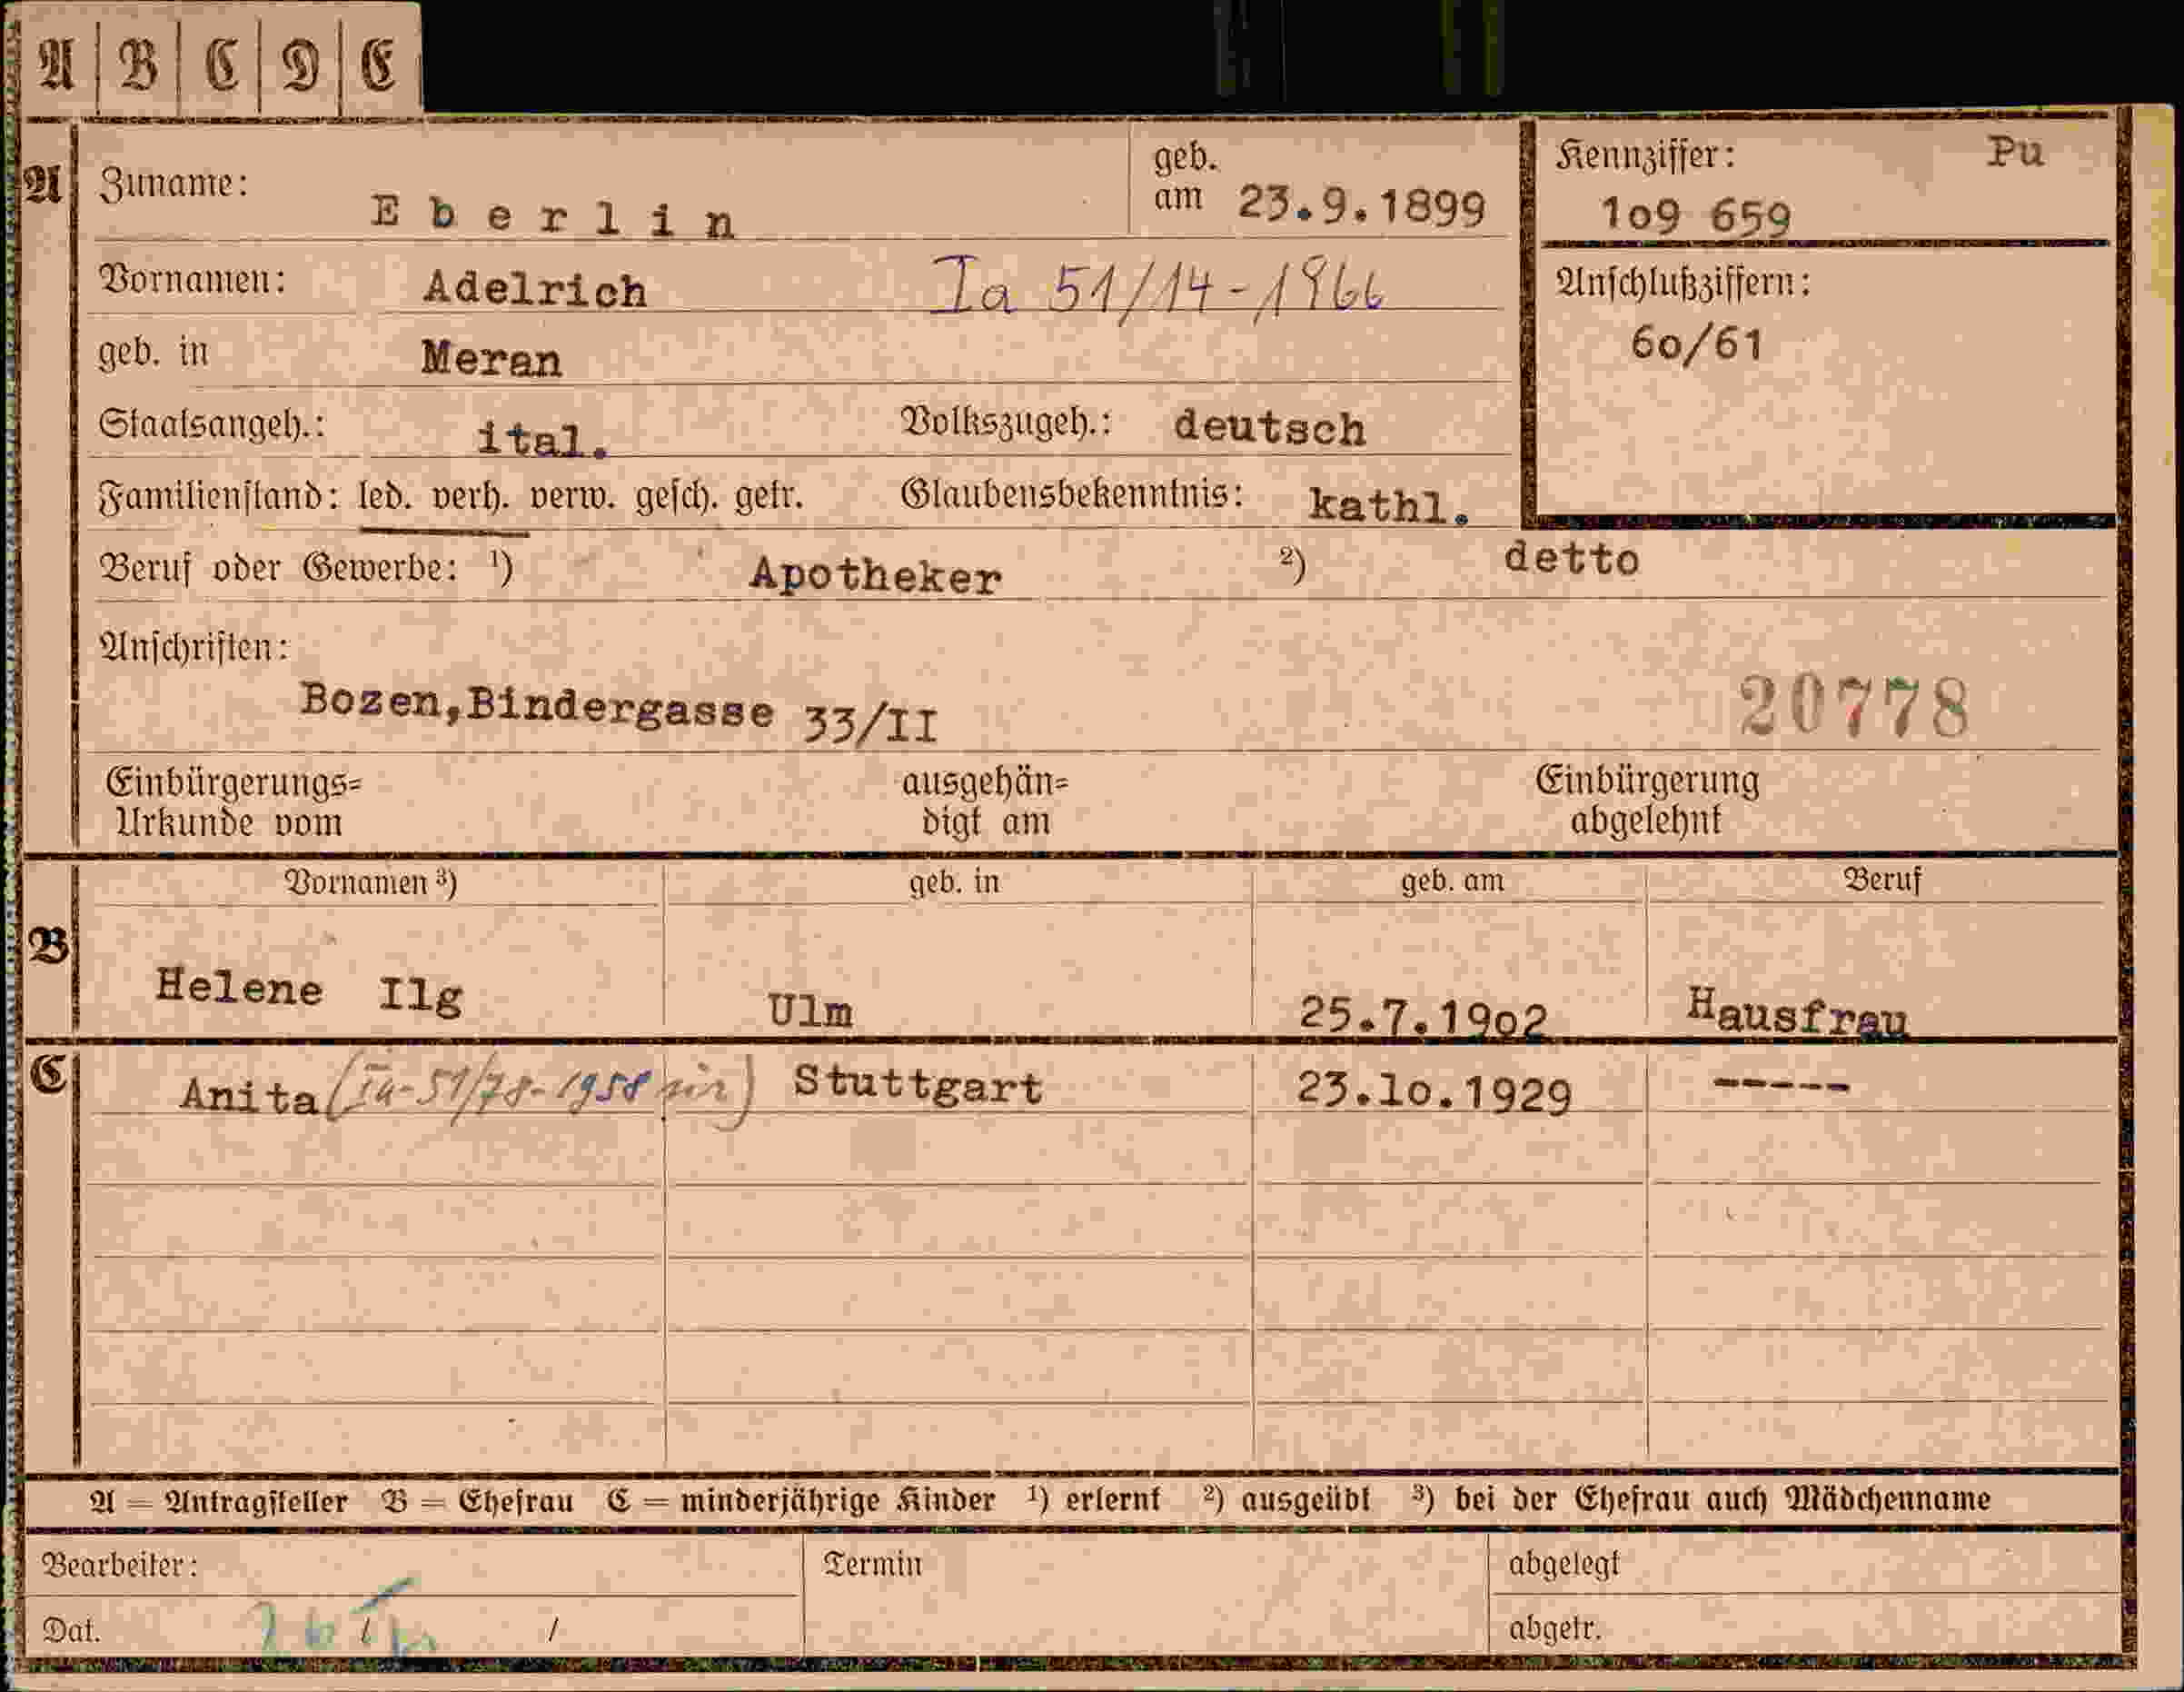 A B C D E
A Zuname: Eberlin geb. am 23.9.1899
Kennziffer: Pu
1o9 659
Vornamen: Adelrich Ia 51/14-1966
Anschlußziffern:
6o/61
geb. in Meran
Staatsangeh.: ital. Volkszugeh.: deutsch
Familienstand: led. verh. verw. gesch. getr. Glaubensbekenntnis: kathl.
Beruf oder Gewerbe: ¹) Apotheker ²) detto
Anschriften:
Bozen,Bindergasse 33/II
20778
Einbürgerungs= ausgehän= Einbürgerung
Urkunde vom digt am abgelehnt
Vornamen ³) geb. in geb. am Beruf
B
Helene Ilg Ulm 25.7.19o2 Hausfrau
C
Anita (Ia-51/78-1958 ) Stuttgart 23.1o.1929 -----
A = Antragsteller B = Ehefrau C = minderjährige Kinder ¹) erlernt ²) ausgeübt ³) bei der Ehefrau auch Mädchenname
Bearbeiter: Termin abgelegt
Dat. / / abgetr.